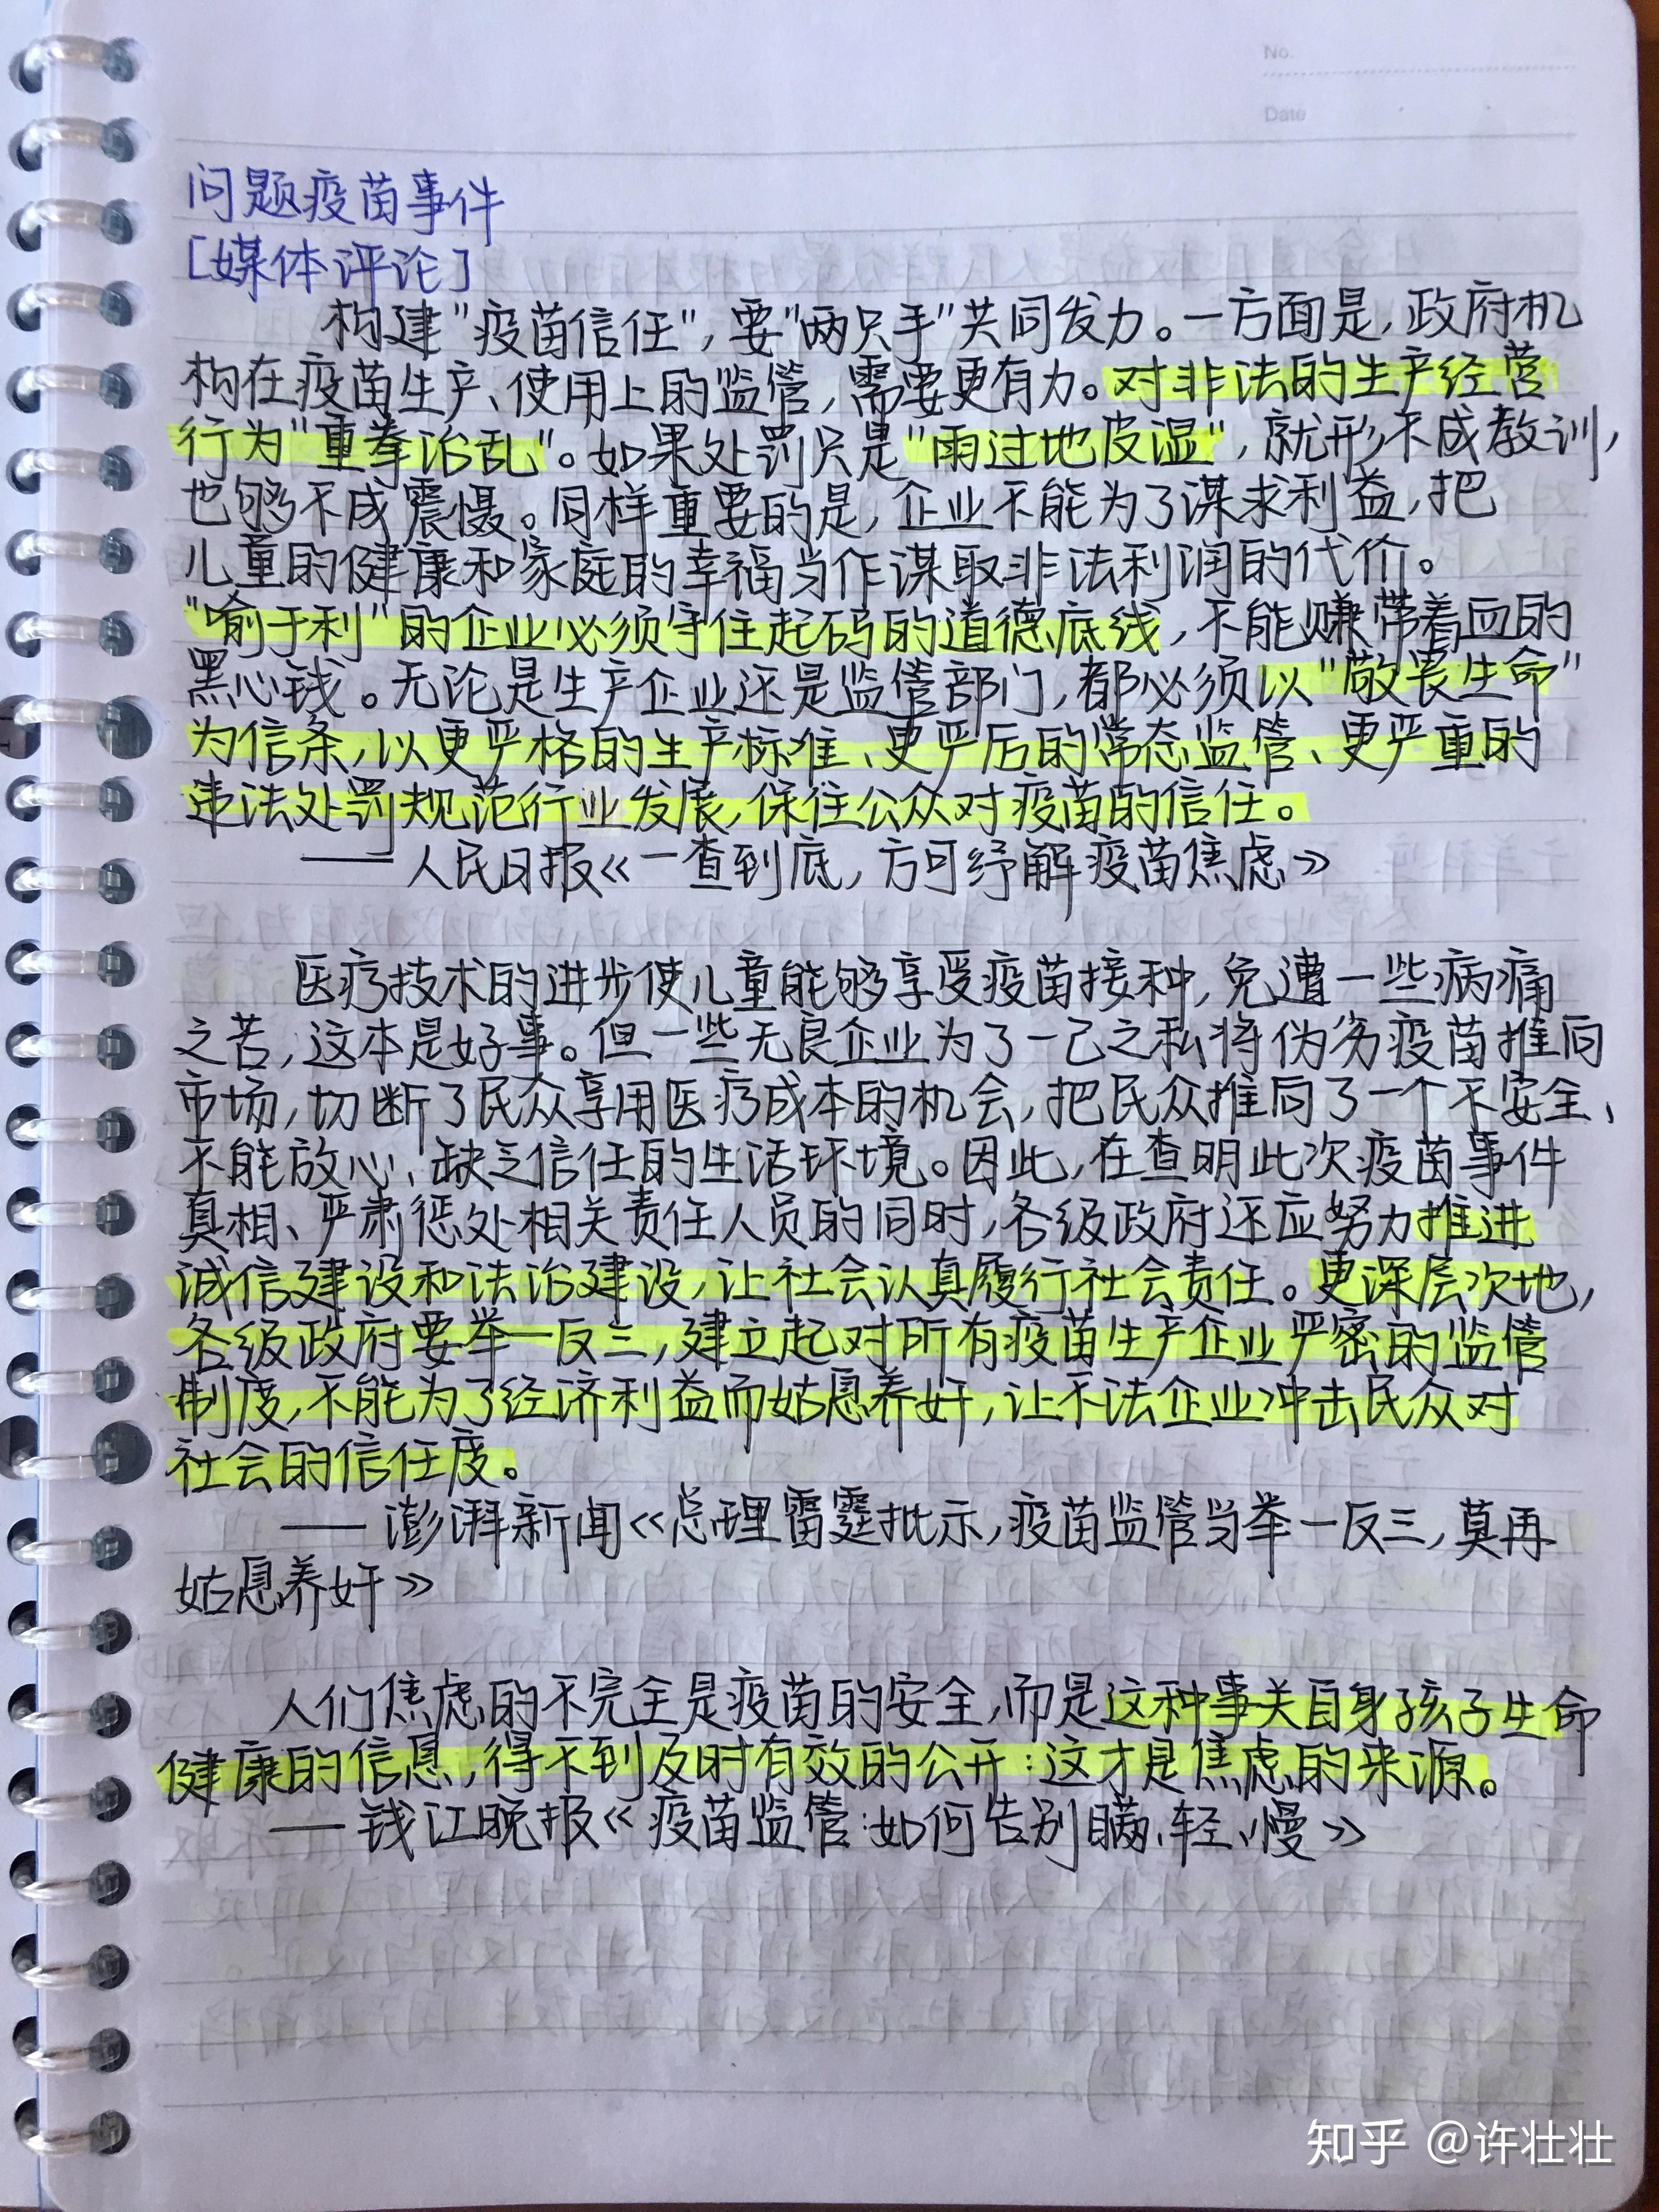 No.
Date
问题疫苗事件
[媒体评论]
构建"疫苗信任",要"两只手"共同发力。一方面是,政府机
构在疫苗生产、使用上的监管,需要更有力。对非法的生产经营
行为"重拳治乱"。如果处罚只是"雨过地皮湿",就形不成教训,
也够不成震慑。同样重要的是,企业不能为了谋求利益,把
儿童的健康和家庭的幸福当作谋取非法利润的代价。
"喻于利"的企业必须守住起码的道德底线,不能赚带着血的
黑心钱。无论是生产企业还是监管部门,都必须以"敬畏生命"
为信条,以更严格的生产标准、更严厉的常态监管、更严重的
违法处罚规范行业发展,保住公众对疫苗的信任。
——人民日报《一查到底,方可纾解疫苗焦虑》
医疗技术的进步使儿童能够享受疫苗接种,免遭一些病痛
之苦,这本是好事。但一些无良企业为了一己之私将伪劣疫苗推向
市场,切断了民众享用医疗成本的机会,把民众推向了一个不安全、
不能放心、缺乏信任的生活环境。因此,在查明此次疫苗事件
真相、严肃惩处相关责任人员的同时,各级政府还应努力推进
诚信建设和法治建设,让社会认真履行社会责任。更深层次地,
各级政府要举一反三,建立起对所有疫苗生产企业严密的监管
制度,不能为了经济利益而姑息养奸,让不法企业冲击民众对
社会的信任度。
——澎湃新闻《总理雷霆批示,疫苗监管当举一反三,莫再
姑息养奸》
人们焦虑的不完全是疫苗的安全,而是这种事关自身孩子生命
健康的信息,得不到及时有效的公开:这才是焦虑的来源。
——钱江晚报《疫苗监管:如何告别瞒、轻、慢》
知乎 @许壮壮